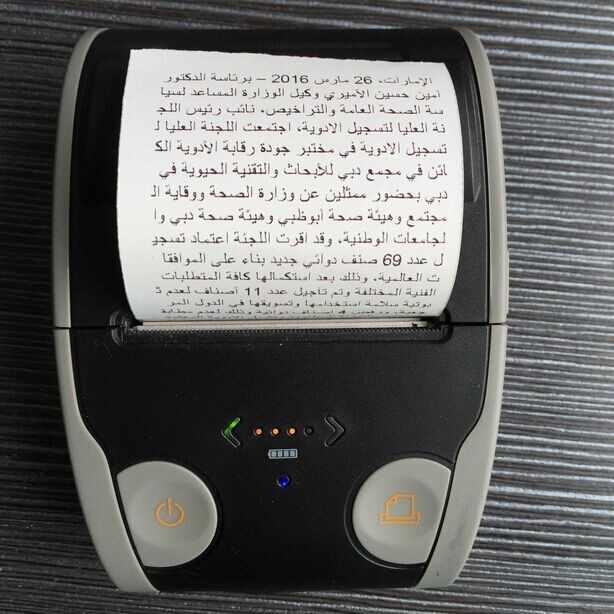 الإمارات، 26 مارس 2016 – برئاسة الدكتور
أمين حسين الأميري وكيل الوزارة المساعد لسيا
سة الصحة العامة والتراخيص، نائب رئيس اللج
نة العليا لتسجيل الادوية، اجتمعت اللجنة العليا ل
تسجيل الادوية في مختبر جودة رقابة الأدوية الك
ائن في مجمع دبي للأبحاث والتقنية الحيوية في
دبي بحضور ممثلين عن وزارة الصحة ووقاية ال
مجتمع وهيئة صحة أبوظبي وهيئة صحة دبي وا
لجامعات الوطنية، وقد اقرت اللجنة اعتماد تسجي
ل عدد 69 صنف دوائي جديد بناء على الموافقا
ت العالمية، وذلك بعد استكمالها كافة المتطلبات
الفنية المختلفة وتم تأجيل عدد 11 أصناف لعدم ث
بوتية سلامة استخدامها وتسويقها في الدول المر
أصناف دوائية وذلك لعدم مطابقة